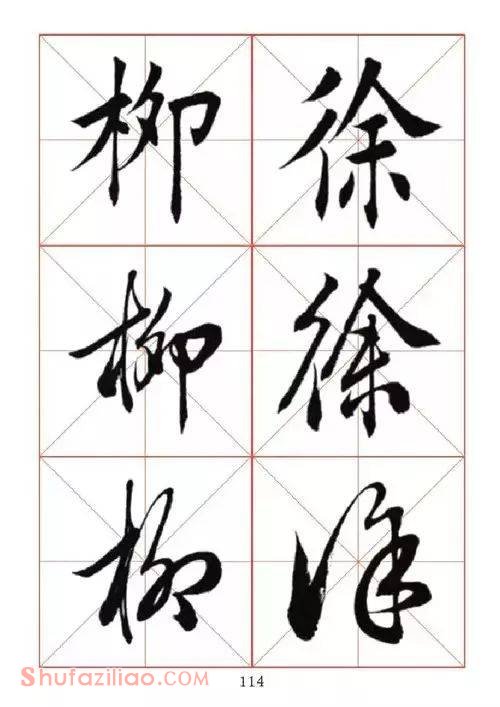 徐 柳
徐 柳
徐 柳
Shufaziliao.com
114